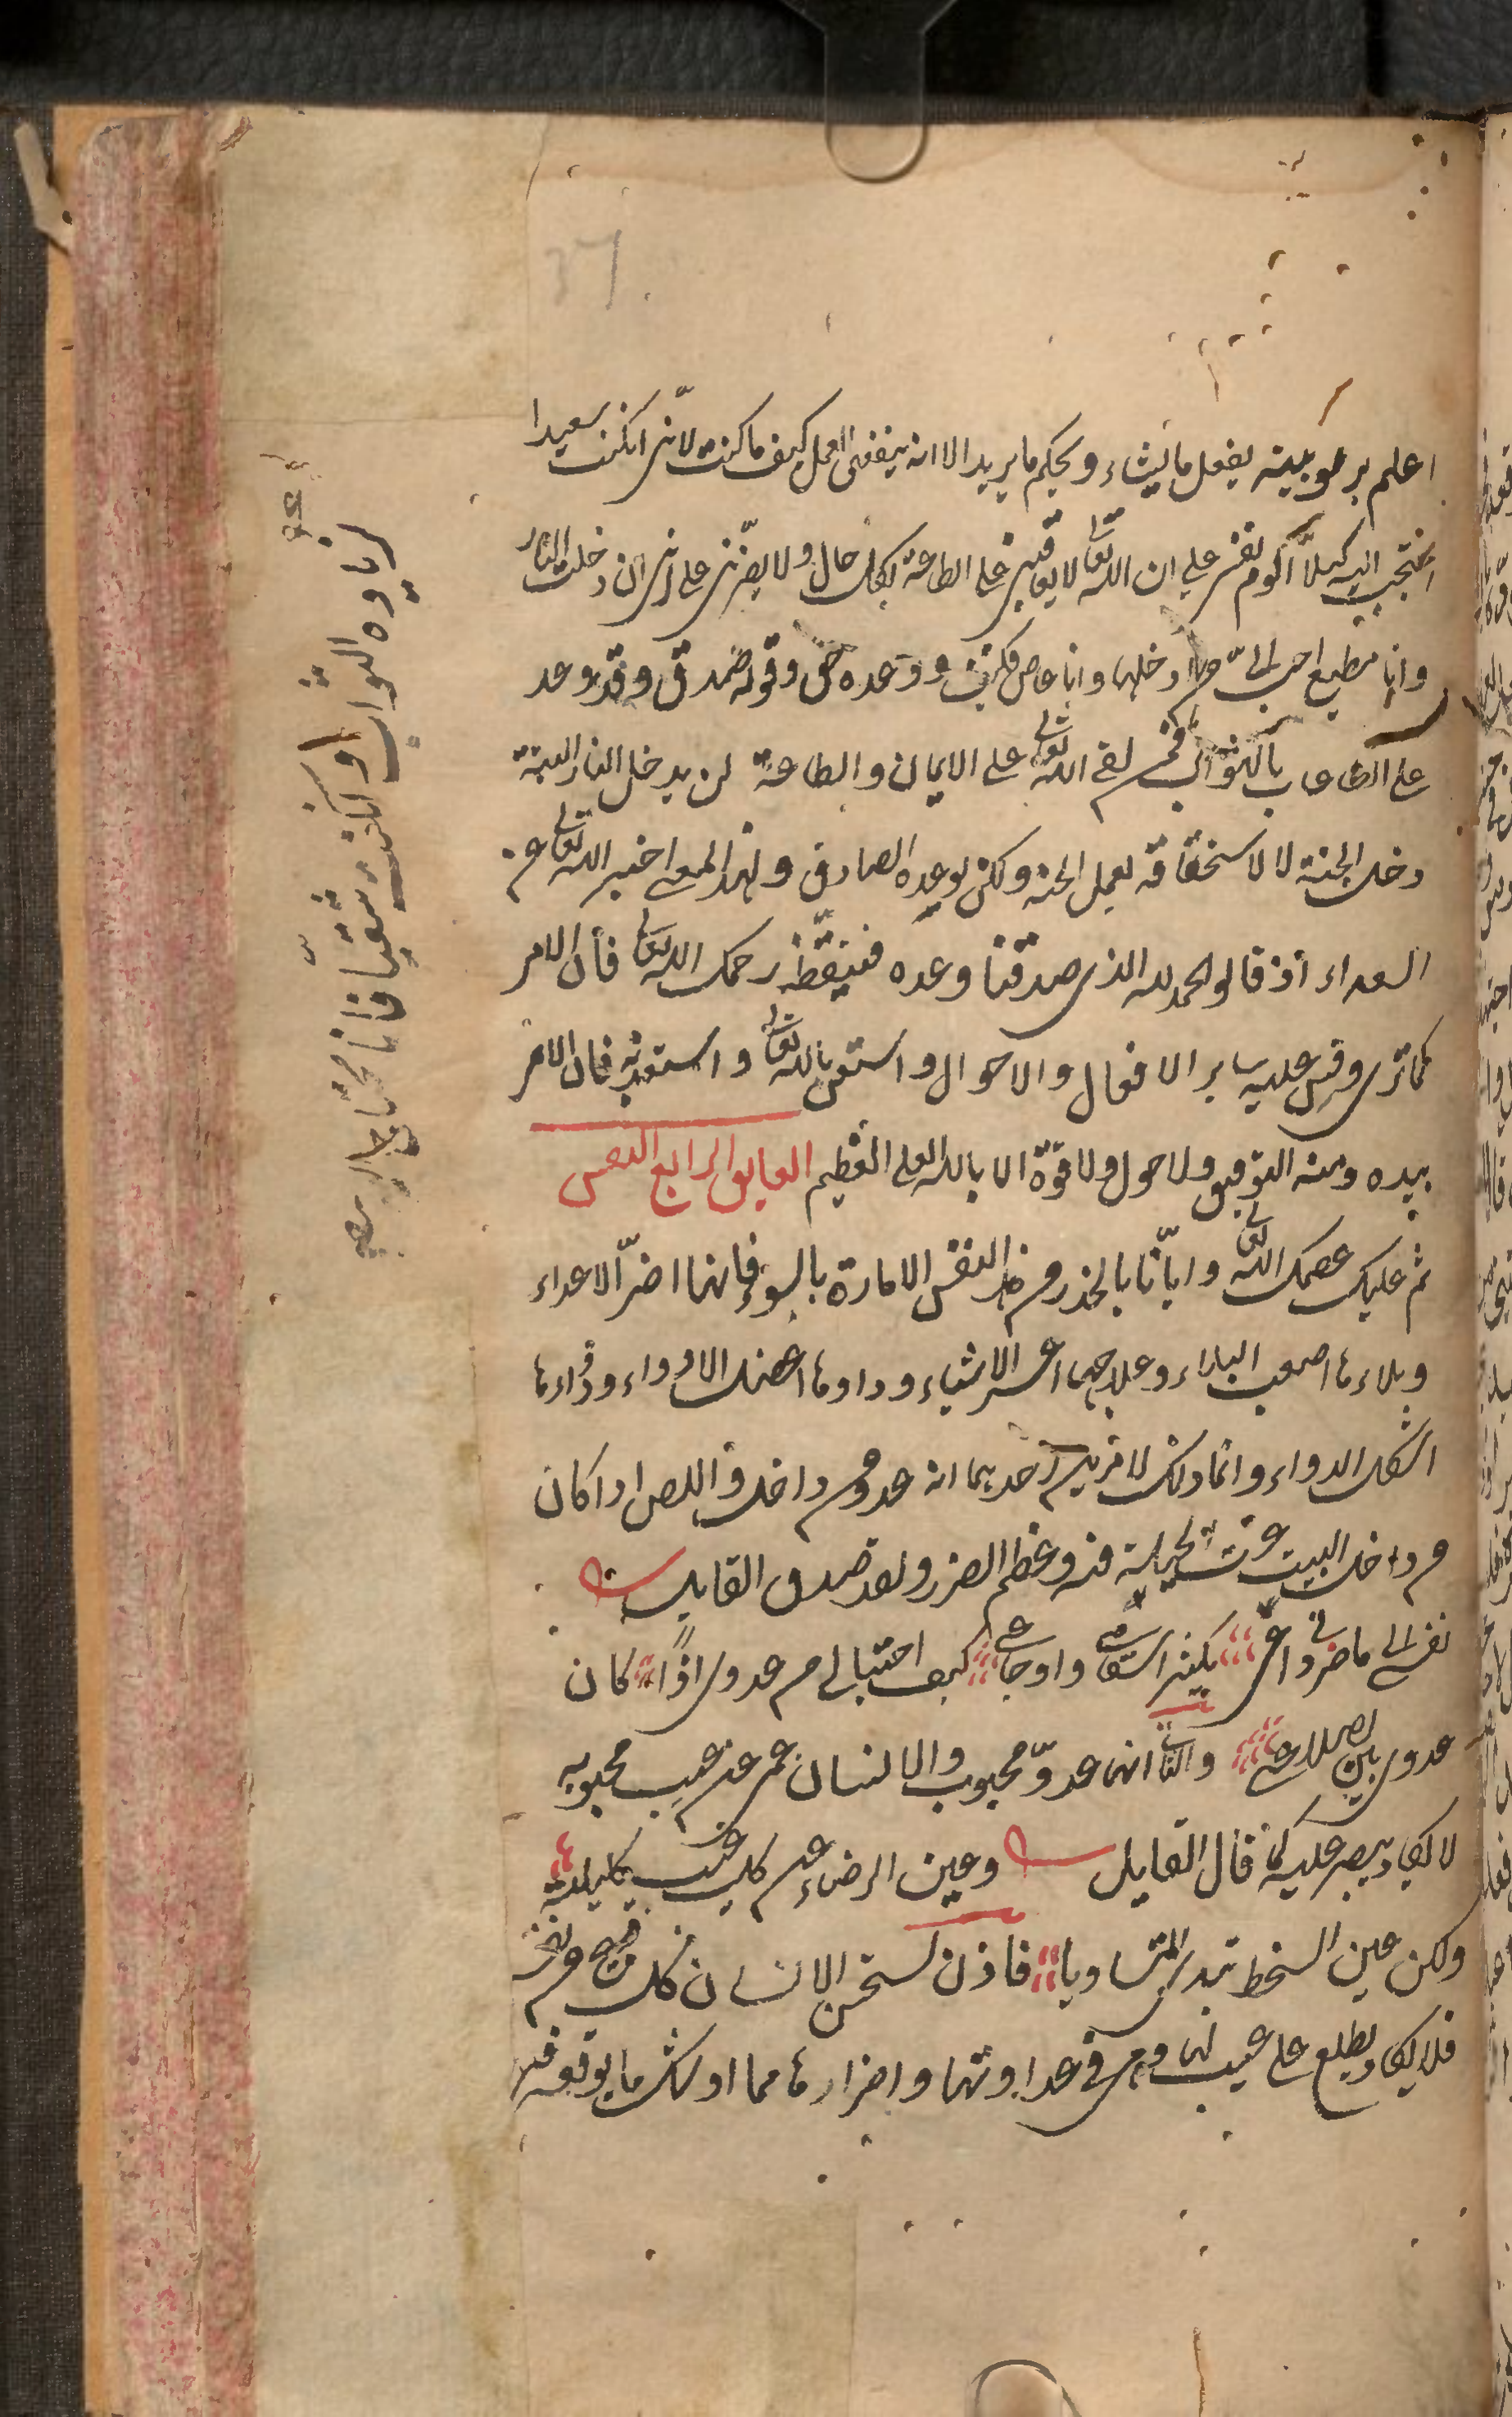 اعلم بربوبيته يفعل ما يشاء ويحكم ما يريد الا انه ينفعنى العمل كيف ما كنت لانى ان كنت سعيدا
احتجب اليه كيلا الوم نفسى على ان الله تعالى لا يعاقبنى على الطاعة بكل حال ولا يضرنى على انى ان دخلت النار
وانا مطيع احب الى من ان ادخلها وانا عاص فكيف ووعده حق وقوله صدق وقد وعد
على الطاعات بالثواب فمن لقى الله تعالى على الايمان والطاعة لن يدخل النار البتة
دخل الجنة لا لاستحقاقه بعمل الجنة ولكن لوعده الصادق ولهذا المعنى اخبر الله تعالى عن
السعداء اذ قالوا الحمد لله الذى صدقنا وعده فتيقظ رحمك الله تعالى فان الامر
كما ترى وقس عليه ساير الافعال والاحوال واستعن بالله تعالى واستعذ به فان الامر
بيده ومنه التوفيق ولا حول ولا قوة الا بالله العلى العظيم العايق الرابع النفس
ثم عليك عصمك الله تعالى وايانا بالحذر من هذه النفس الامارة بالسوء فانها اضر الاعداء
وبلاءها اصعب البلاء وعلاجها اعسر الاشياء وداءها اعضل الادواء ودواءها
اشكل الدواء وانما ذلك لامرين احديهما انه عدو من داخل واللص اذا كان
من داخل البيت عزت الحيلة فيه وعظم الضرر ولقد صدق القايل
نفسى الى ما ضرنى داعى يكثر اسقامى واوجاعى كيف احتيالى من عدوى اذا كان
عدوى بين اضلاعى والثانى انها عدو محبوب والانسان عم عن عيب محبوبه
لا يكاد يبصر عليه كما قال القايل وعين الرضاء عن كل عيب كليلة
ولكن عين السخط تبدى المساويا فاذن يستحسن الانسان كل قبيح من نفسه
فلا يكاد يطلع على عيب لها وهى فى عداوتها واضرارها مما اوشك ما يوقعه فى
لزيادة الثواب او ان كنت شقيا فانا محتاج اليه